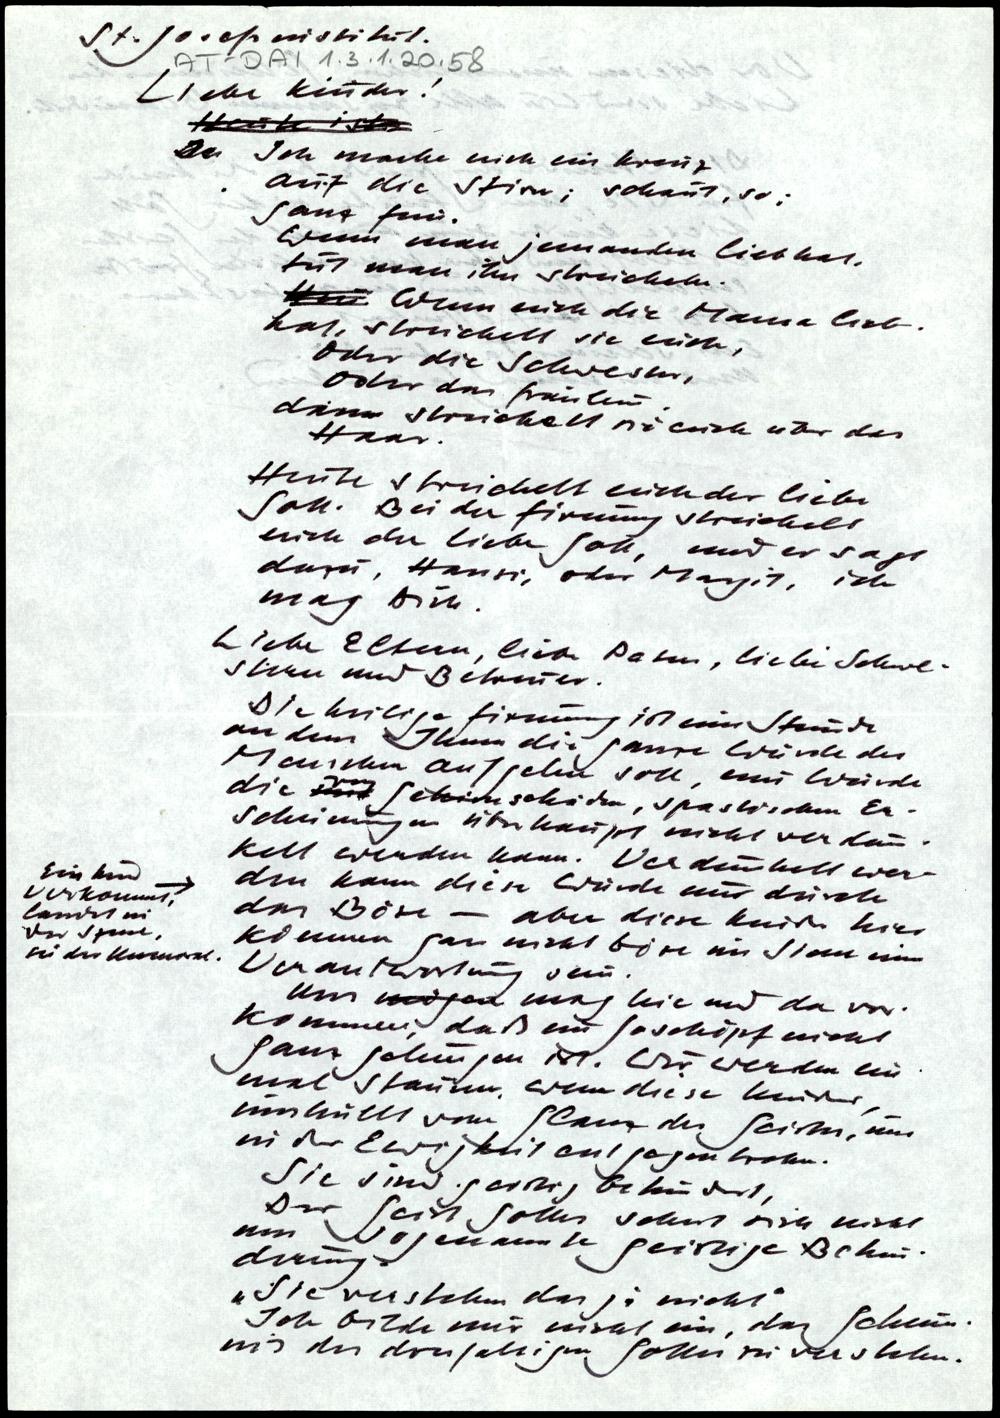 St. Josefsinstitut.
AT-DAI 1.3.1.20.58
Liebe Kinder!
Heute ist
Ich mache euch ein Kreuz
auf die Stirn; schaut, so;
ganz fein.
Wenn man jemanden lieb hat,
tut man ihn streicheln.
Wenn euch die Mama lieb
hat, streichelt sie euch,
Oder die Schwester,
Oder das Fräulein.
dann streichelt sie euch über das
Haar.
Heute streichelt euch der liebe
Gott. Bei der Firmung streichelt
euch der liebe Gott, und er sagt
dazu, Hansi, oder Margit, ich
mag Dich.
Liebe Eltern, liebe Paten, liebe Schwe-
stern und Betreuer.
Die heilige Firmung ist eine Stunde
an dem Ihnen die ganze Würde des
Menschen aufgehen soll, eine Würde
die von Gehirnschäden, spastischen Er-
scheinungen überhaupt nicht verdun-
kelt werden kann. Verdunkelt wer-
den kann diese Würde nur durch
das Böse — aber diese Kinder hier
können gar nicht böse im Sinn einer
Verantwortung sein.
Ein Kind
verkommt,
landet in
der
in der Unmoral.
Uns mögen mag hie und da vor-
kommen, daß ein Geschöpf nicht
ganz gelungen ist. Wir werden ein-
mal staunen, wenn diese Kinder,
umhüllt vom Glanz des Geistes, uns
in der Ewigkeit entgegentreten.
Sie sind geistig behindert,
Der Geist Gottes schert sich nicht
um sogenannte geistige Behin-
derung.
„Sie verstehen das ja nicht"
Ich bilde mir nicht ein, das Geheim-
nis des dreifaltigen Gottes zu verstehen.